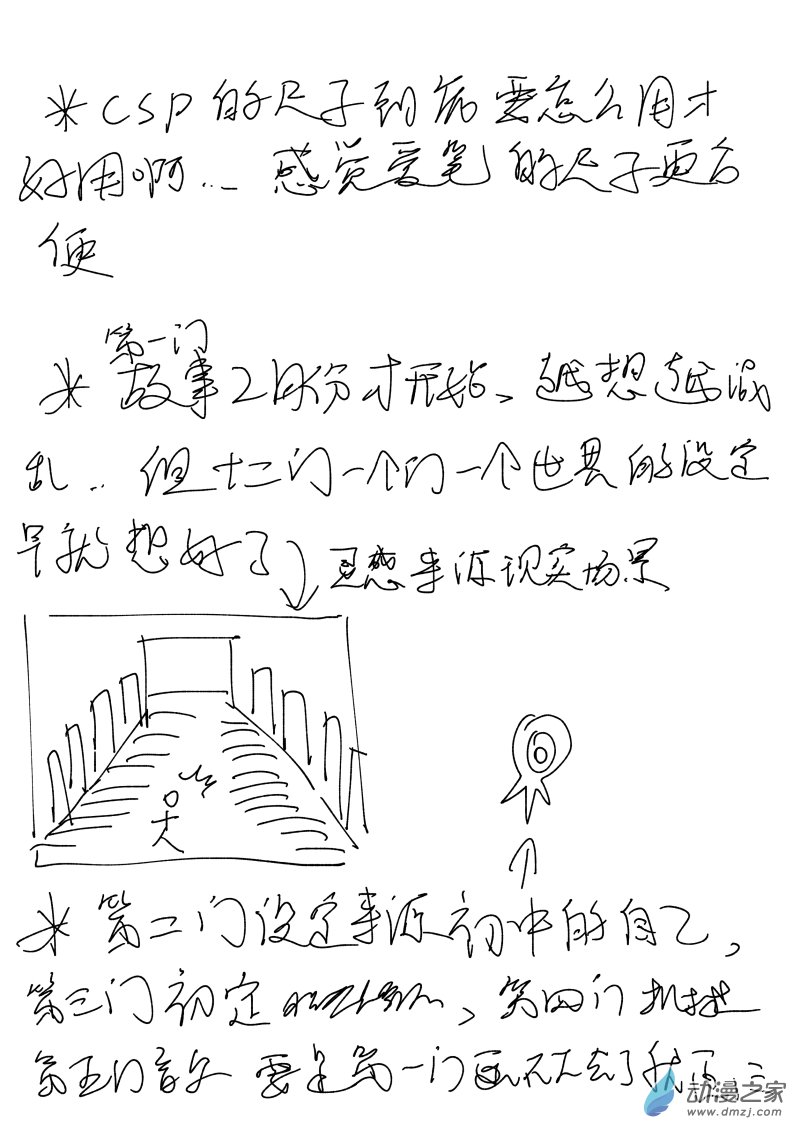 *CSP的尺子到底要怎么用才
好用啊... 感觉爱笔的尺子更合
便
第一门
*故事2月份才开始、越想越混
乱.. 但十二门一个门一个世界的设定
早就想好了
灵感来源现实场景
*第二门设定来源初中的自己,
第三门初定、第四门机械
第五门音乐 要是第一门画不下去了我
动漫之家
www.dmzj.com